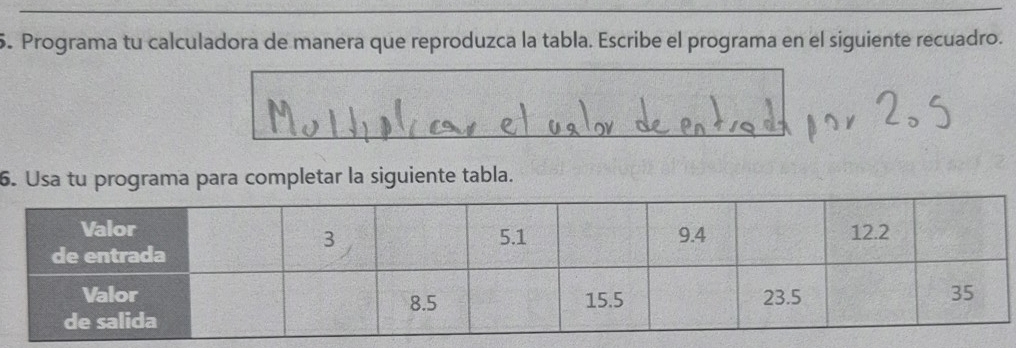 5. Programa tu calculadora de manera que reproduzca la tabla. Escribe el programa en el siguiente recuadro.
Multiplicar el valor de entrada por 2.5
6. Usa tu programa para completar la siguiente tabla.
Valor de entrada 3 5.1 9.4 12.2
Valor de salida 8.5 15.5 23.5 35